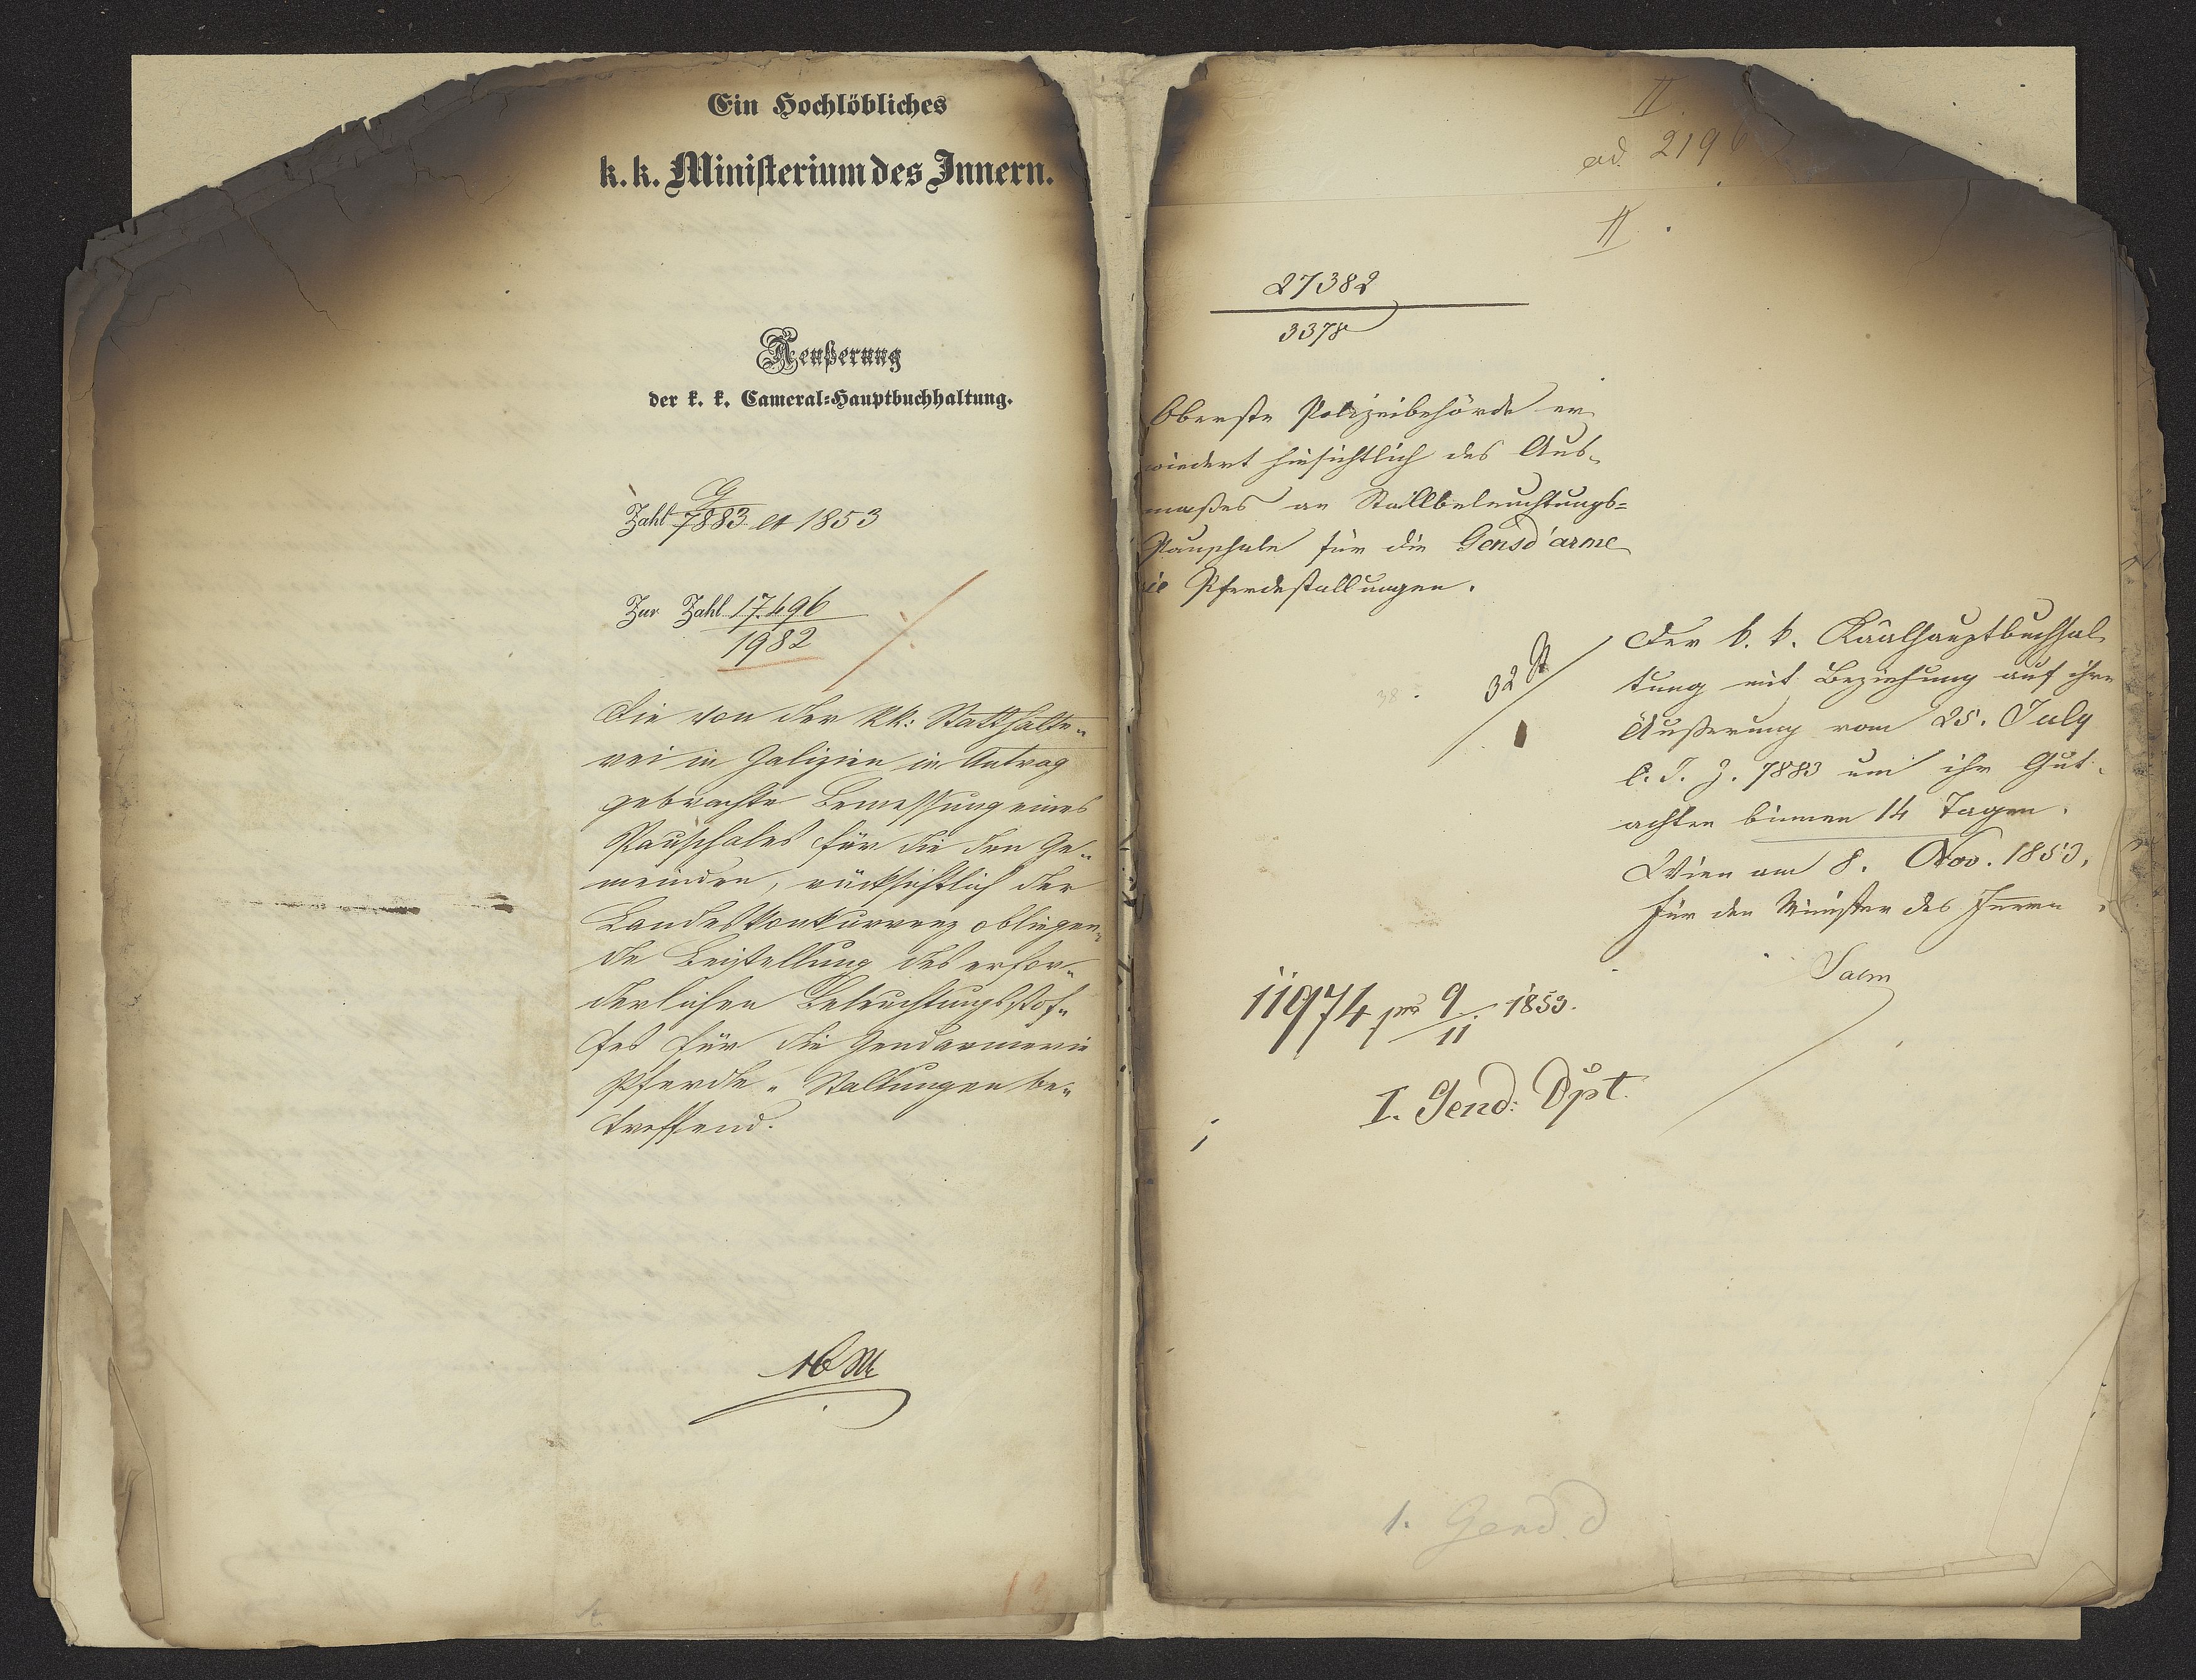 Ein Hochlöbliches
k. k. Ministerium des Innern.
Aeußerung
der k. k. Cameral-Hauptbuchhaltung.
G
Zahl 7883 et 1853
Zur Zahl 17.496
1982
Die von der kk: Statthalte„
rei in Galizien in Antrag
gebrachte Bemessung eines
Pauschales für die den Ge„
meinden, rücksichtlich der
Landeskonkurrenz obliegen„
de Beistellung des erfor„
derlichen Beleuchtungsstof„
fes für die Gendarmerie
Pferde„ Stallungen be„
treffend.
13
II.
ad 2196
II.
27382
3378
Oberste Polizeibehörde er
wiedert hinsichtlich des Aus„
maßes an Stallbeleuchtungs=
Pauschale für die Gensd'arme
rie Pferdestallungen.
38.
32
Der k. k. Kaalhauptbuchhal
tung mit Beziehung auf ihre
Äußerung vom 25. July
l. J. Z. 7883 um ihr Gut„
achten binnen 14 Tagen.
Wien am 8. Nov. 1853.
Für den Minister des Innern
Salm
11974 pr 9/11 1853.
I. Gend: Dpt.
1. Gend. D